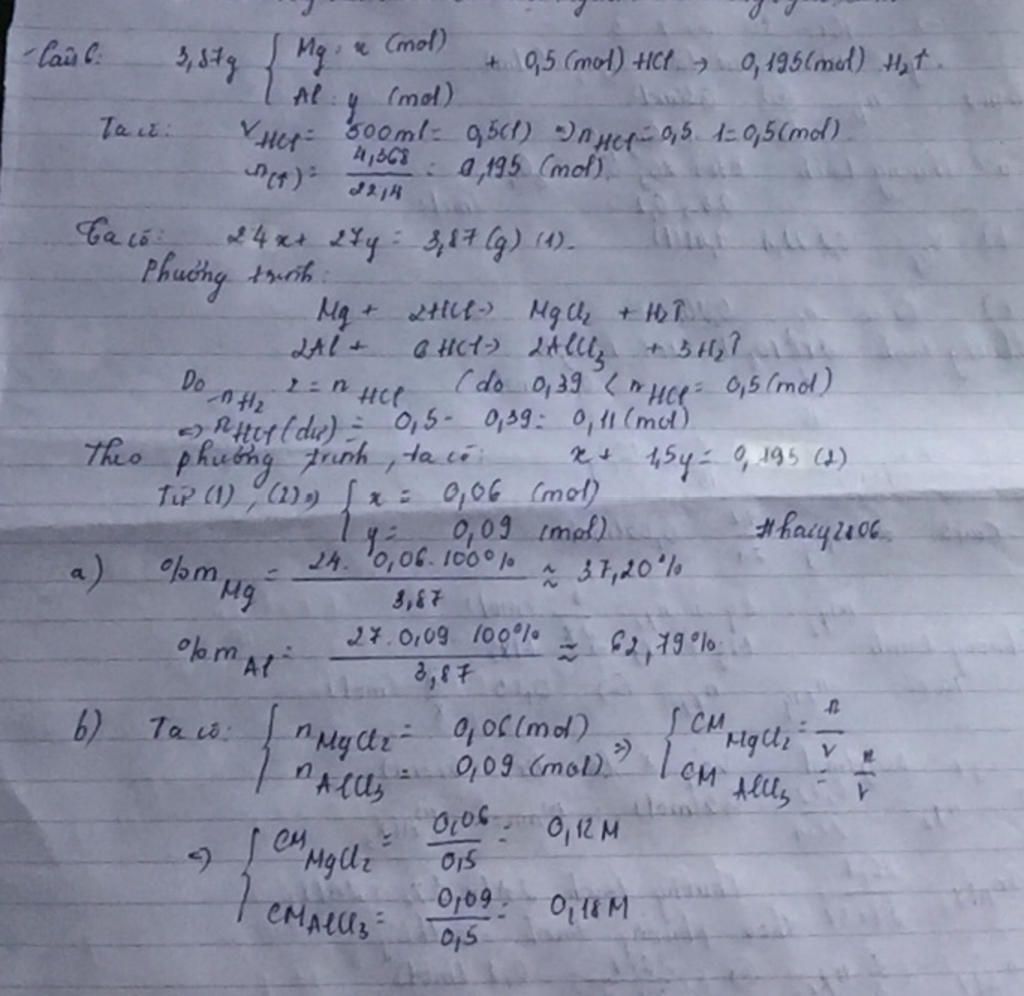 Câu 6: 3,87g { Mg: x (mol) + 0,5 (mol) HCl → 0,195 (mol) H2↑.
Al: y (mol)
Ta có: VHCl = 500ml = 0,5(l) ⇒ nHCl = 0,5. 1 = 0,5 (mol)
n(↑) = 4,368/22,4 = 0,195 (mol)
Ta có: 24x + 27y = 3,87 (g) (1).
Phương trình:
Mg + 2HCl → MgCl2 + H2↑
2Al + 6HCl → 2AlCl3 + 3H2↑
Do nH2. 2 = nHCl (do 0,39 < nHCl = 0,5 (mol)
⇒ nHCl (dư) = 0,5 - 0,39 = 0,11 (mol)
Theo phương trình, ta có: x + 1,5y = 0,195 (2)
Từ (1), (2) ⇒ { x = 0,06 (mol)
y = 0,09 (mol)
a) %mMg = 24. 0,06. 100%/3,87 ≈ 37,20%
%mAl = 27. 0,09. 100%/3,87 ≈ 62,79%
b) Ta có: { nMgCl2 = 0,06 (mol) ⇒ { CM MgCl2 = n/V
nAlCl3 = 0,09 (mol) CM AlCl3 = n/V
⇒ { CM MgCl2 = 0,06/0,5 = 0,12M
CM AlCl3 = 0,09/0,5 = 0,18M